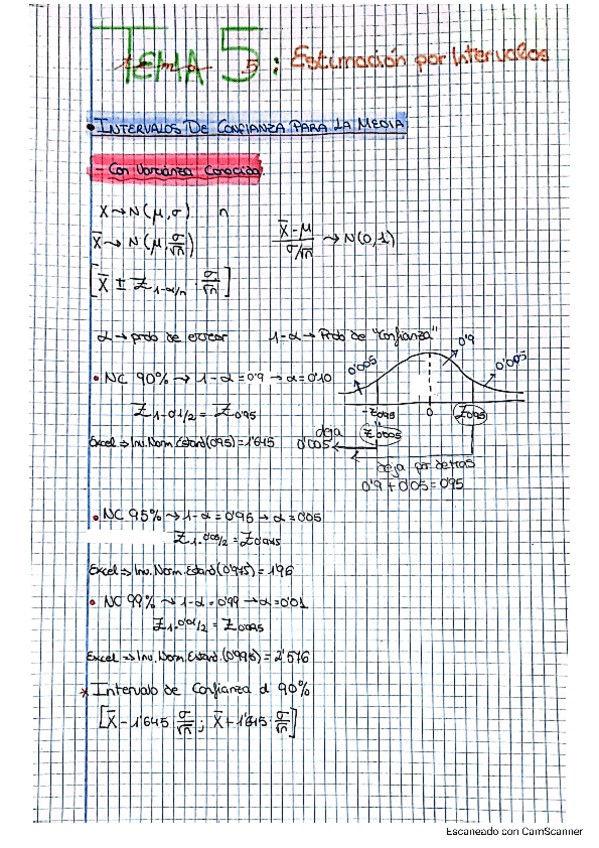 TEMA 5: Estimación por Intervalos
• INTERVALOS DE CONFIANZA PARA LA MEDIA
- Con Varianza Conocida
X → N(μ, σ) n
X̄ → N(μ, σ/√n) (X̄-μ)/(σ/√n) → N(0,1)
[X̄ ± Z1-α/n · σ/√n]
α → prob de error 1-α → Prob de "confianza"
0'9
0'005
0'005
• NC 90% → 1-α = 0'9 → α = 0'10
Z1-0'1/2 = Z0'95
-Z0.95 0 Z0.95
Excel → Inv.Norm.Estand(0'95) = 1'645
deja 0'005 Z0'005
deja por detras
0'9 + 0'05 = 0'95
• NC 95% → 1-α = 0'95 → α = 0'05
Z1-0'05/2 = Z0'975
Excel → Inv.Norm.Estand(0'975) = 1'96
• NC 99% → 1-α = 0'99 → α = 0'01
Z1-0'01/2 = Z0'995
Excel → Inv.Norm.Estand.(0'995) = 2'576
* Intervalo de Confianza al 90%
[X̄ - 1'645 · σ/√n ; X̄ + 1'645 · σ/√n]
Escaneado con CamScanner